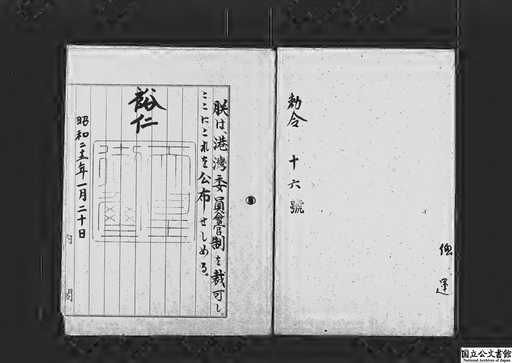 勅令 十六號
朕は、港灣委員會官制を裁可し、
ここにこれを公布せしめる。
裕仁
天皇御璽
昭和二十二年一月二十日
内閣
国立公文書館
National Archives of Japan